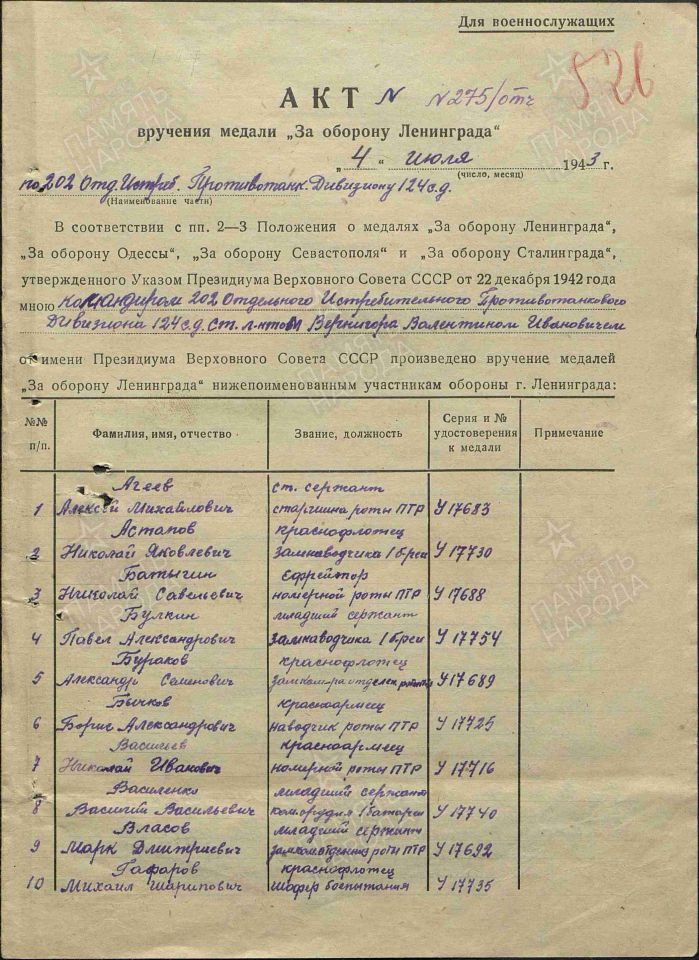 Для военнослужащих
526
АКТ N N275/отч
вручения медали „За оборону Ленинграда“
„4“ июля 1943 г.
(число, месяц)
по 202 Отд. Истреб. Противотанк. Дивизиону 124 с.д.
(Наименование части)
В соответствии с пп. 2—3 Положения о медалях „За оборону Ленинграда“,
„За оборону Одессы“, „За оборону Севастополя“ и „За оборону Сталинграда“,
утвержденного Указом Президиума Верховного Совета СССР от 22 декабря 1942 года
мною Командиром 202 Отдельного Истребительного Противотанкового
Дивизиона 124 с.д. ст. л-нтом Вернигора Валентином Ивановичем
от имени Президиума Верховного Совета СССР произведено вручение медалей
„За оборону Ленинграда“ нижепоименованным участникам обороны г. Ленинграда:
№№ п/п. Фамилия, имя, отчество Звание, должность Серия и № удостоверения к медали Примечание
Агеев ст. сержант
1 Алексей Михайлович старшина роты ПТР У 17683
Астапов краснофлотец
2 Николай Яковлевич замнаводчика 1 бреи У 17730
Батыгин Ефрейтор
3 Николай Савельевич номерной роты ПТР У 17688
Булкин младший сержант
4 Павел Александрович замнаводчика 1 бреи У 17754
Бураков краснофлотец
5 Александр Семенович У 17689
Бычков красноармеец
6 Борис Александрович наводчик роты ПТР У 17725
Васильев красноармеец
7 Николай Иванович номерной роты ПТР У 17716
Василенко младший сержант
8 Василий Васильевич ком.орудия 1 батареи У 17740
Власов младший сержант
9 Марк Дмитриевич роты ПТР У 17692
Гафаров краснофлотец
10 Михаил Шарипович шофер боепитания У 17735
ПАМЯТЬ НАРОДА